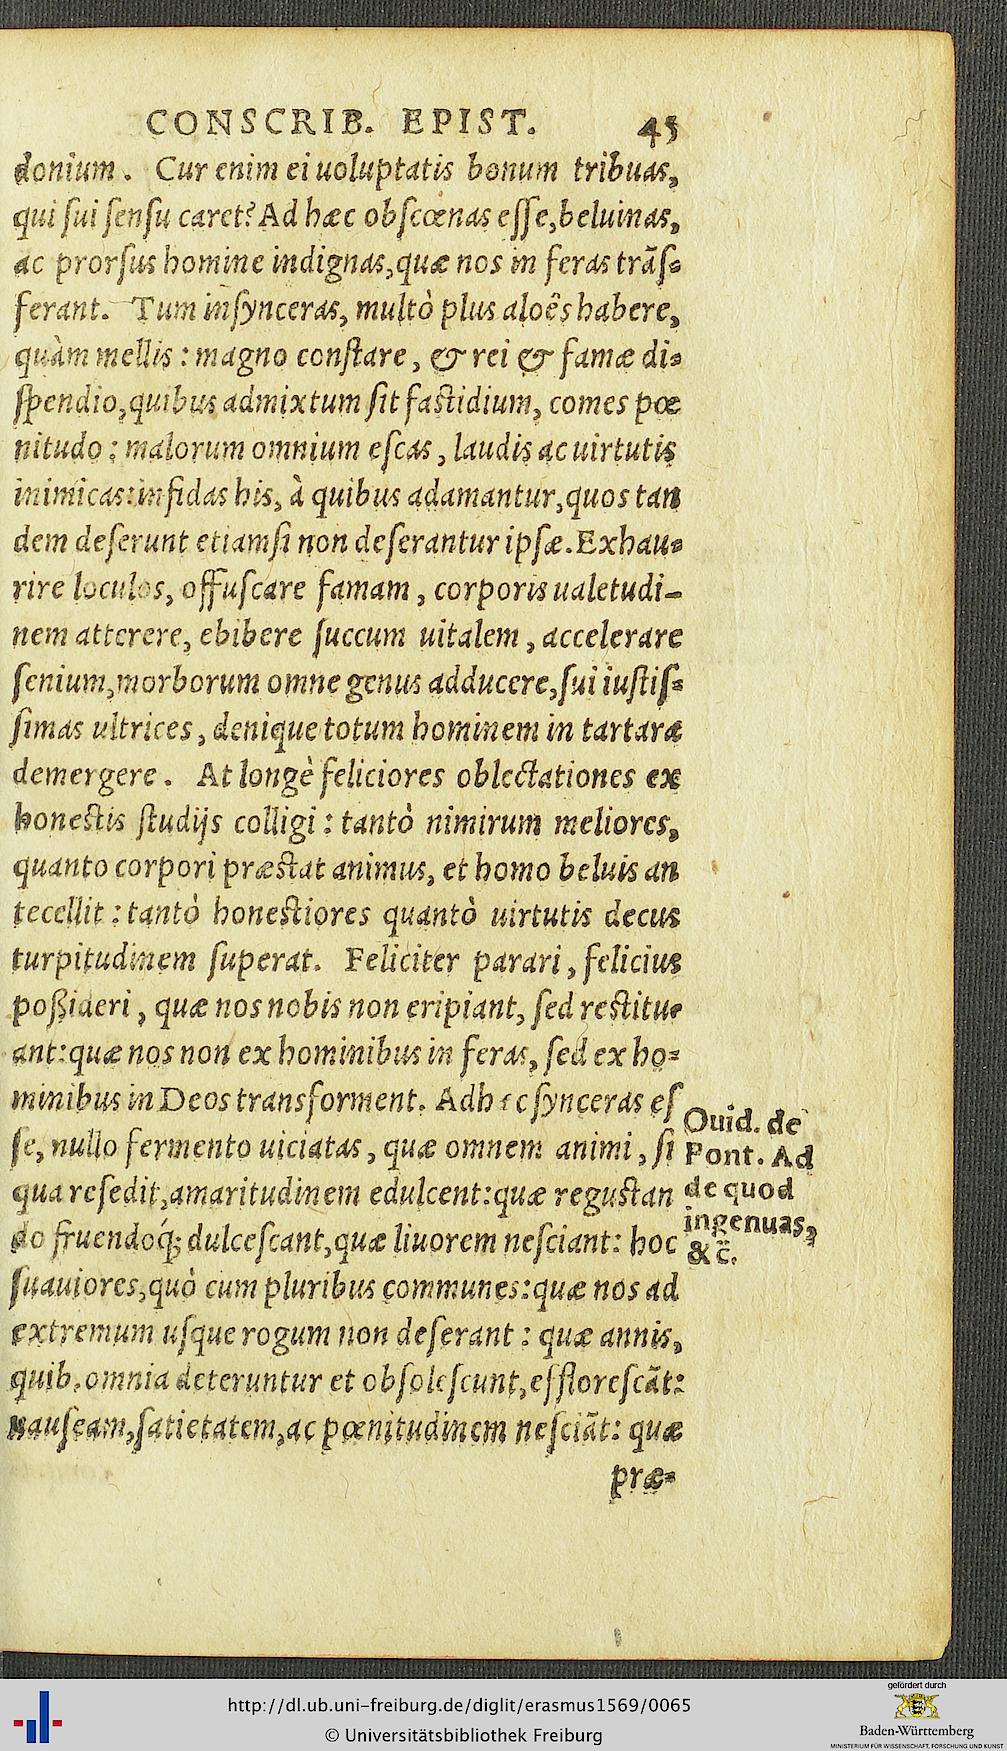 CONSCRIB. EPIST. 45
donium. Cur enim ei uoluptatis bonum tribuas,
qui sui sensu caret? Ad hæc obscœnas esse, beluinas,
ac prorsus homine indignas, quæ nos in feras trãs-
ferant. Tum insynceras, multò plus aloês habere,
quàm mellis: magno constare, & rei & famæ di-
spendio, quibus admixtum sit fastidium, comes pœ
nitudo: malorum omnium escas, laudis ac uirtutis
inimicas: infidas his, à quibus adamantur, quos tan
dem deserunt etiamsi non deserantur ipsæ. Exhau-
rire loculos, offuscare famam, corporis ualetudi-
nem atterere, ebibere succum uitalem, accelerare
senium, morborum omne genus adducere, sui iustis-
simas ultrices, denique totum hominem in tartara
demergere. At longè feliciores oblectationes ex
honestis studijs colligi: tantò nimirum meliores,
quanto corpori præstat animus, et homo beluis an
tecellit: tantò honestiores quantò uirtutis decus
turpitudinem superat. Feliciter parari, felicius
poßideri, quæ nos nobis non eripiant, sed restitu-
ant: quæ nos non ex hominibus in feras, sed ex ho-
minibus in Deos transforment. Adhęc synceras es
se, nullo fermento uiciatas, quæ omnem animi, si
qua resedit, amaritudinem edulcent: quæ regustan
do fruendoq́; dulcescant, quæ liuorem nesciant: hoc
suauiores, quò cum pluribus communes: quæ nos ad
extremum usque rogum non deserant: quæ annis,
quib. omnia deteruntur et obsolescunt, efflorescãt:
nauseam, satietatem, ac pœnitudinem nesciãt: quæ
præ-
Ouid. de
Pont. Ad
de quod
ingenuas,
& c̃.
http://dl.ub.uni-freiburg.de/diglit/erasmus1569/0065
© Universitätsbibliothek Freiburg
gefördert durch
Baden-Württemberg
MINISTERIUM FÜR WISSENSCHAFT, FORSCHUNG UND KUNST